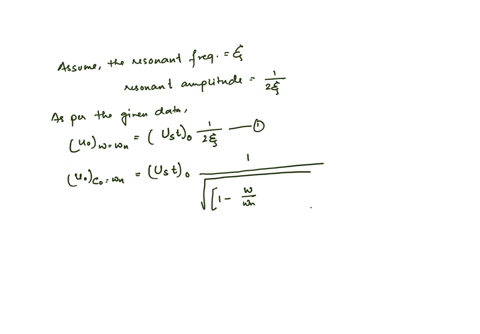 Assume, the resonant freq. = ξ
resonant amplitude = 1/2ξ
As per the given data,
(u₀)ω=ωn = (Ust)₀ 1/2ξ —— ①
(u₀)C₀=ωn = (Ust)₀ 1/√[1 - ω/ωn